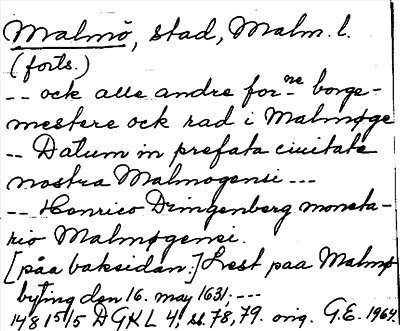 Malmö, stad, Malm. l.
(forts.)
-- ock alle andre for-ne borge-
mestere ock rad i Malmøge
-- Datum in prefata ciuitate
nostra Malmogensi ---
-- Henrico Dringenberg moneta-
rio Malmøgensi.
[påa baksidan:] Lest paa Malmø
byting den 16. may 1631, ---
1481 15/5 DGKL 4, ss. 78, 79. orig. G.E. 1969.